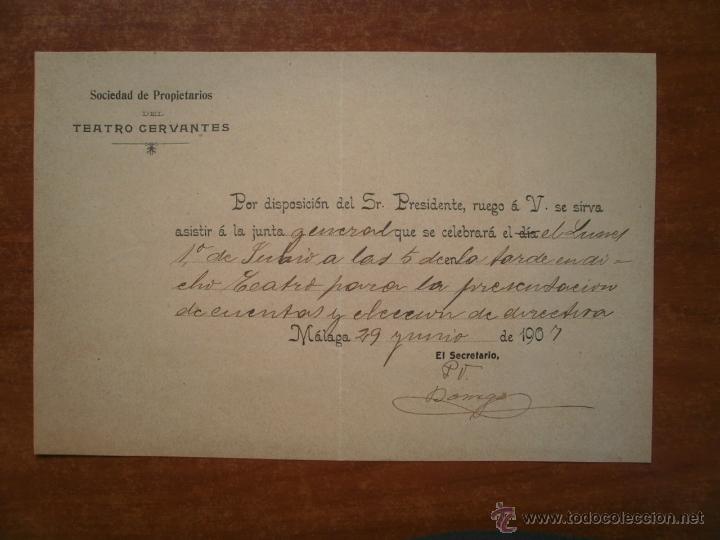 Sociedad de Propietarios
DEL
TEATRO CERVANTES
Por disposición del Sr. Presidente, ruego á V. se sirva
asistir á la junta general que se celebrará el día el Lunes
1.º de Julio a las 5 de en la tarde en di-
cho Teatro para la presentacion
de cuentas y eleccion de directiva
Málaga 29 junio de 1907
El Secretario,
P.V.
todocoleccion
www.todocoleccion.net